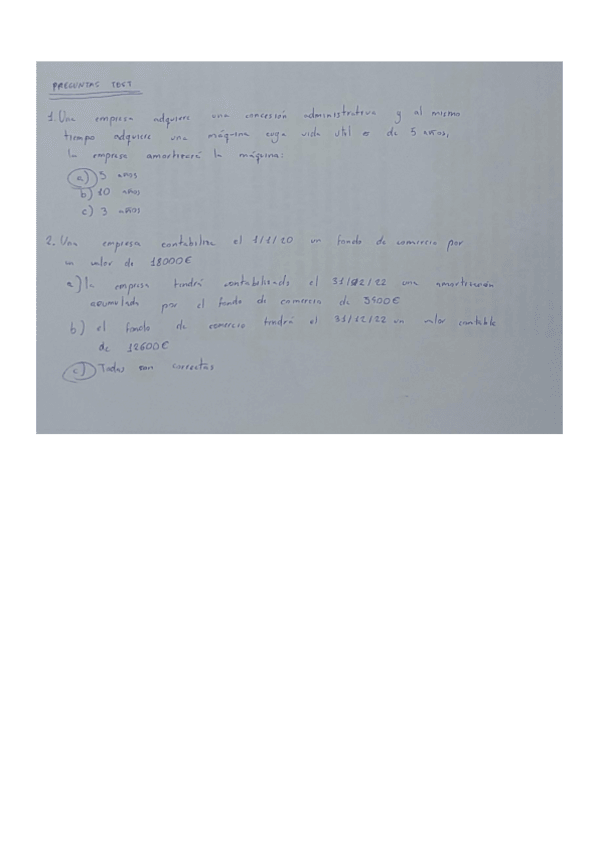 PREGUNTAS TEST
1. Una empresa adquiere una concesión administrativa y al mismo
tiempo adquiere una máquina cuya vida util es de 5 años,
la empresa amortizará la máquina:
a) 5 años
b) 10 años
c) 3 años
2. Una empresa contabiliza el 1/1/20 un fondo de comercio por
un valor de 18000€
a) la empresa tendrá contabilizado el 31/12/22 una amortización
acumulada por el fondo de comercio de 5400€
b) el fondo de comercio tendrá el 31/12/22 un valor contable
de 12600€
c) Todas son correctas